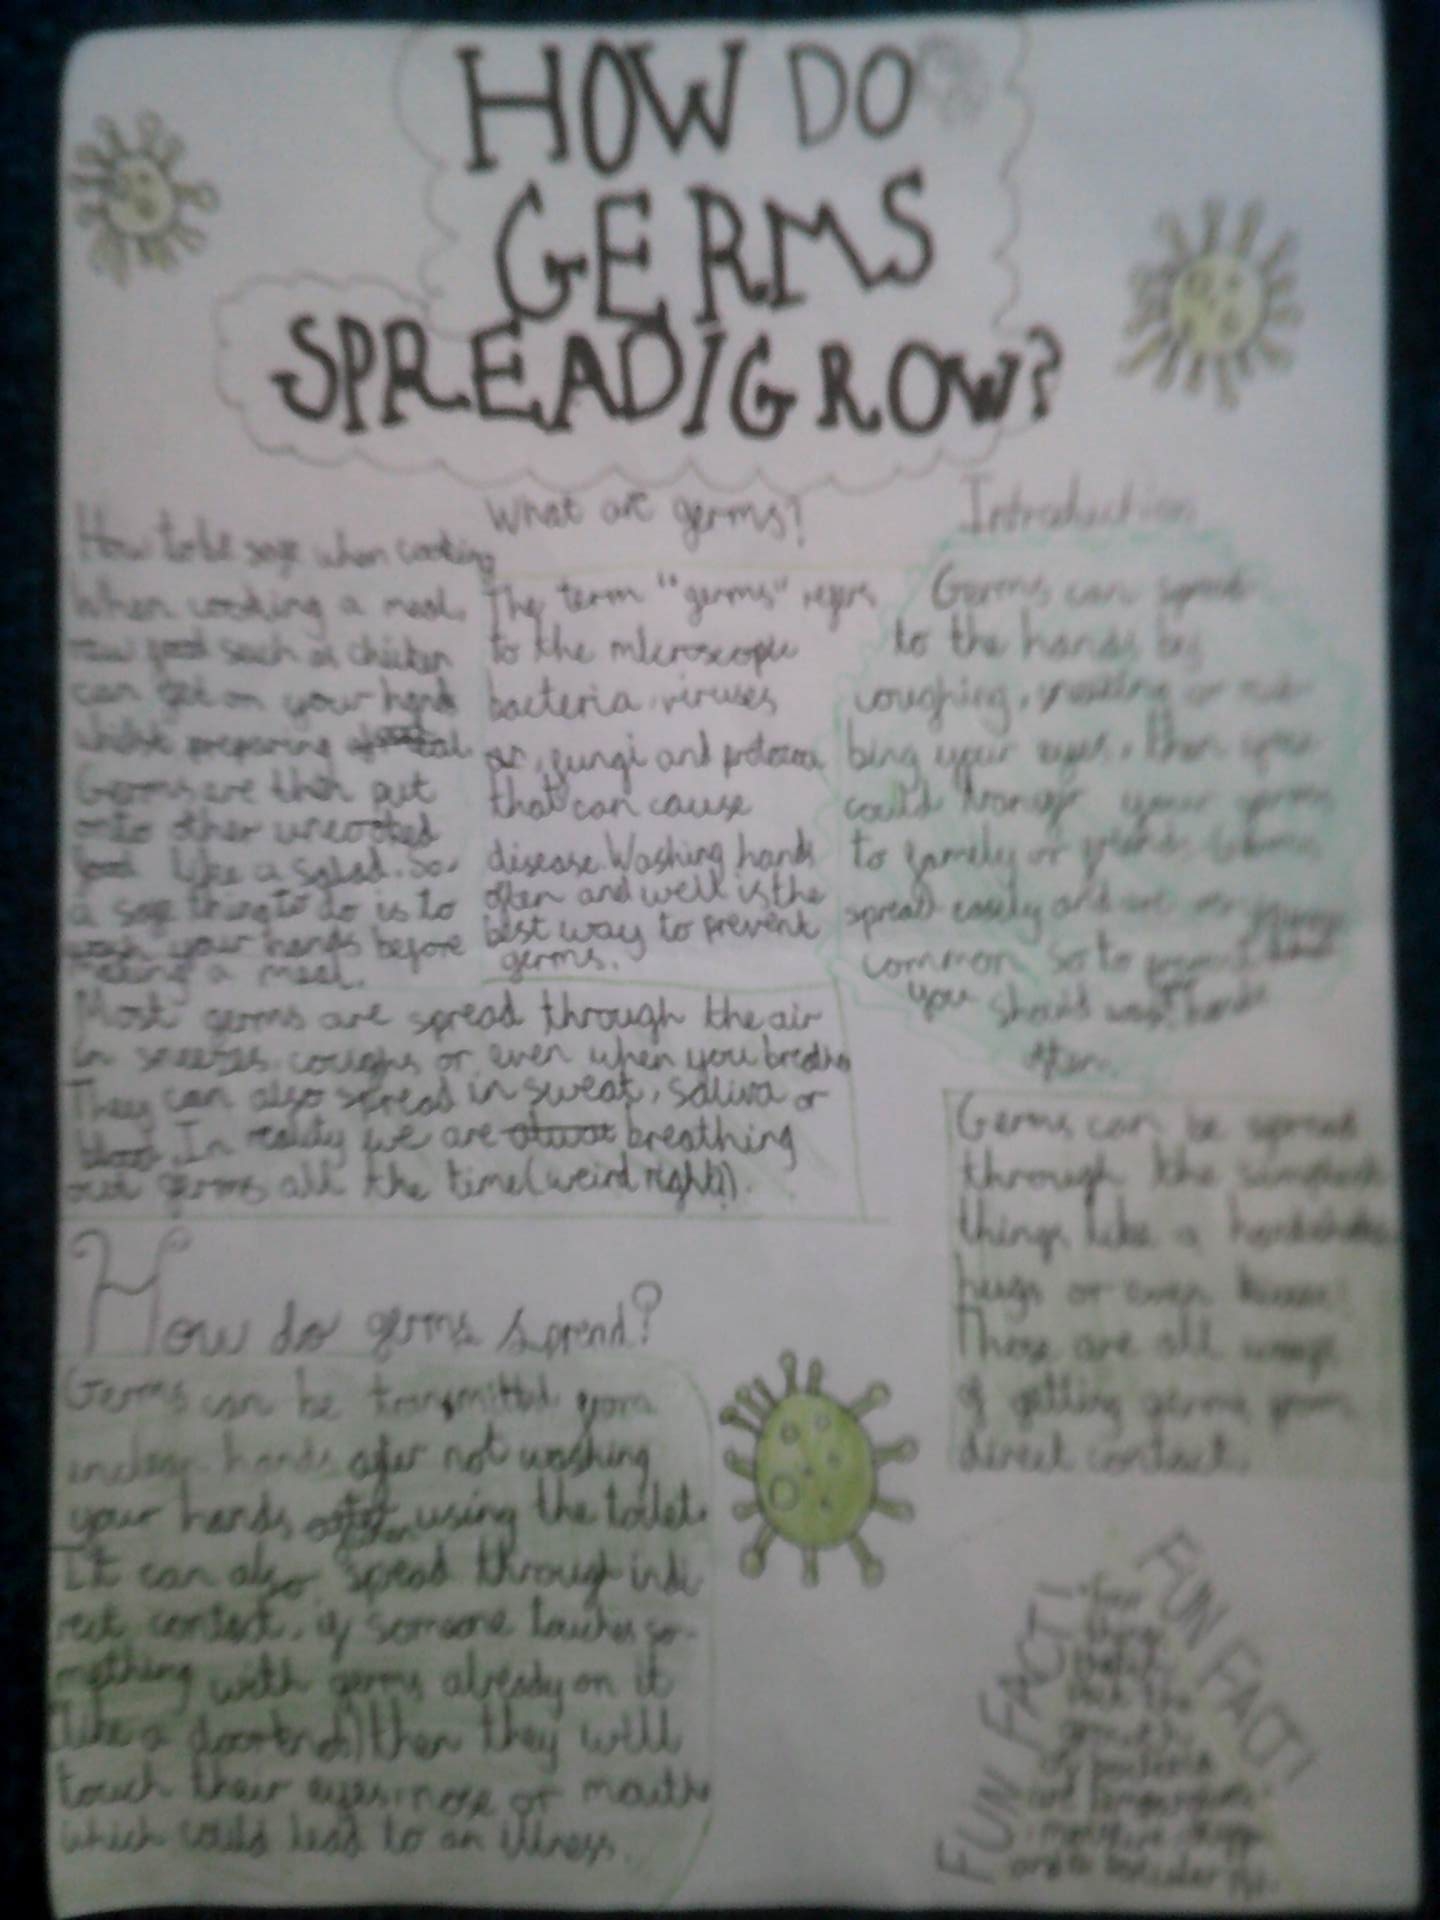 HOW DO
GERMS
SPREAD/GROW?
How to be safe when cooking
When cooking a meal,
raw food such as chicken
can get on your hands
whilst preparing
Germs are then put
onto other uncooked
food like a salad. So
a safe thing to do is to
wash your hands before
making a meal.
What are germs?
The term "germs" refers
to the microscopic
bacteria, viruses
fungi and protozoa
that can cause
disease. Washing hands
often and well is the
best way to prevent
germs.
Introduction
Germs can spread
to the hands by
coughing, sneezing or rub-
bing your eyes, then
could transfer your germs
to family or friends.
spread easily and are
common so to prevent
you should wash hands
often.
Most germs are spread through the air
in sneezes, coughs or even when you breathe
They can also spread in sweat, saliva or
blood. In reality we are breathing
out germs all the time (weird right?).
Germs can be spread
through the simplest
things like a handshake
hugs or even kisses!
Those are all ways
of getting germs from
direct contact.
How do germs spread?
Germs can be transmitted from
unclean hands after not washing
your hands using the toilet.
It can also spread through indi
rect contact, if someone touches so-
mething with germs already on it
(like a doorknob) then they will
touch their eyes, nose or mouth
which could lead to an illness.
FUN FACT!
FUN FACT!
things
that
growth
of bacteria